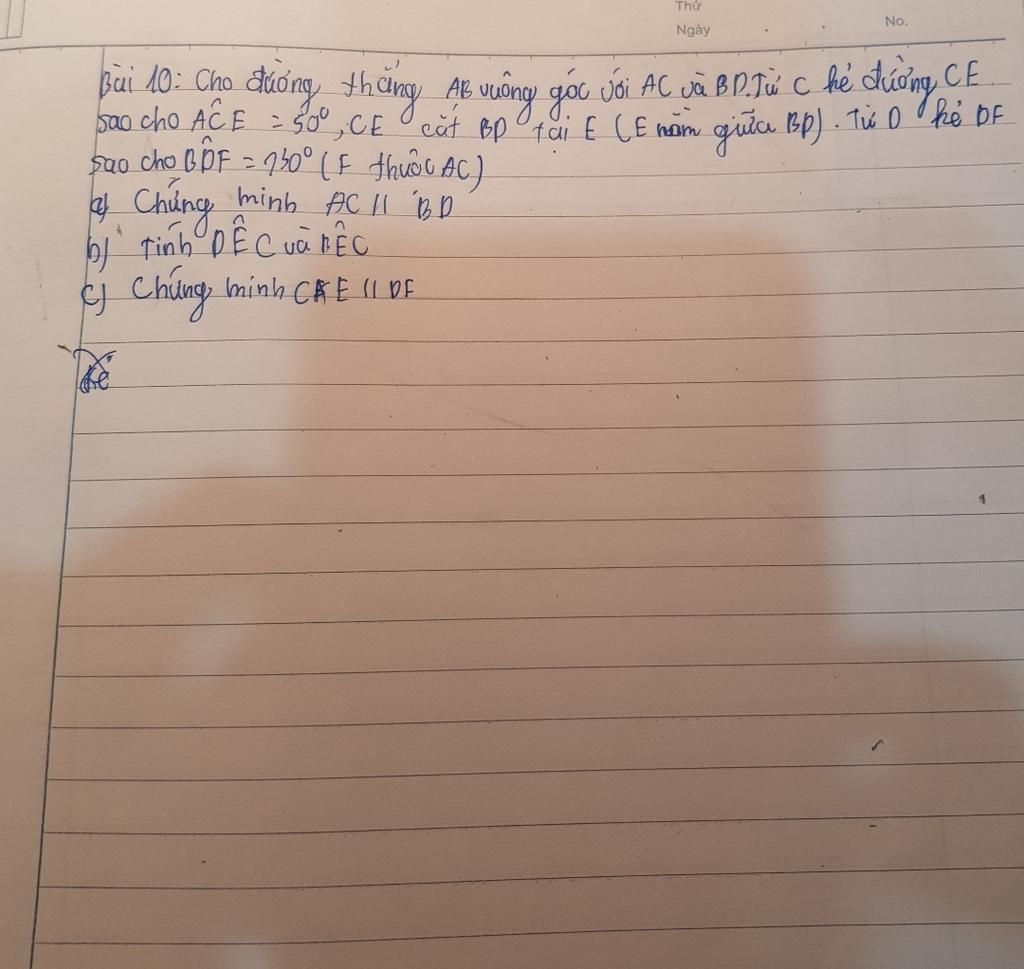 Thứ
Ngày . . No.
Bài 10: Cho đường thẳng AB vuông góc với AC và BD. Từ C kẻ đường CE
sao cho AĈE = 50°, CE cắt BD tại E (E nằm giữa BD). Từ D kẻ DF
sao cho BD̂F = 130° (F thuộc AC)
a) Chứng minh AC // BD
b) Tính DÊC và BÊC
c) Chứng minh CE // DF